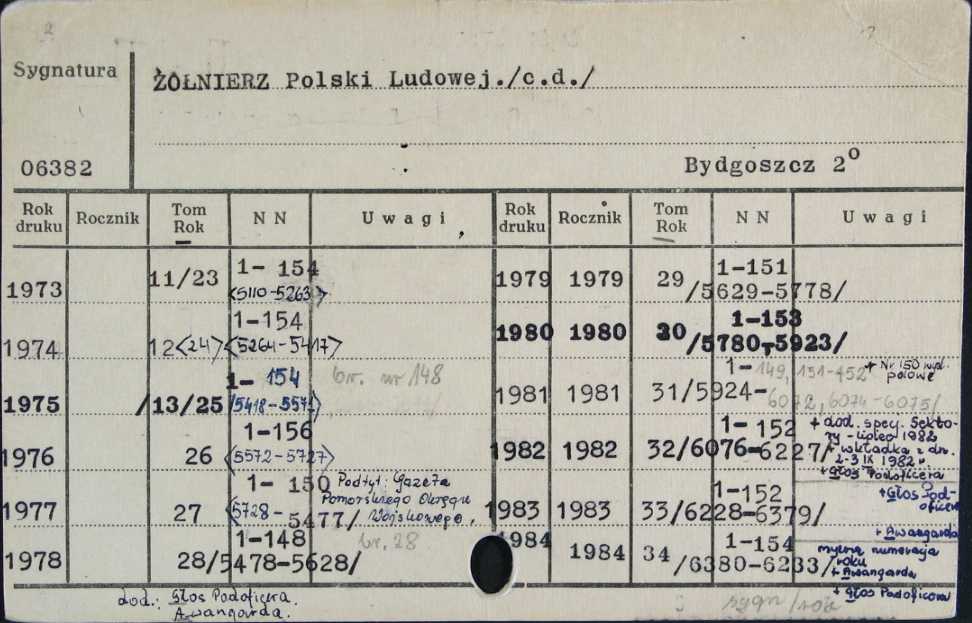 Sygnatura
ŻOŁNIERZ Polski Ludowej./c.d./
06382
Bydgoszcz 2º
Rok druku Rocznik Tom Rok N N Uwagi Rok druku Rocznik Tom Rok N N Uwagi
1973 11/23 1- 154 <5110-5263>
1974 12<24> 1-154 <5264-5417>
1975 /13/25 1- 154 /5418-5571> br. nr 148
1976 26 1-156 <5572-5727>
1977 27 1- 150 <5728- 5477/ Podtyt: Gazeta Pomorskiego Okręgu Wojskowego,
1978 28/5478-5628/ 1-148 br. 28
1979 1979 29 1-151 /5629-5778/
1980 1980 30 1-153 /5780-5923/
1981 1981 31/5924- 1- 149, 151-152 6072, 6074-6075/ + Nr 150 wyd. polowe
1982 1982 32/6076-6227/ 1- 152 + dod. spec. Sekto-
ry - lipiec 1982
+ wkładka z dn.
2-3 IX 1982 r.
+ Głos Podoficera
1983 1983 33/6228-6379/ 1-152 + Głos Pod-
oficera
+ Awangarda
1984 1984 34 1-154 /6380-6233/ mylna numeracja
roku
+ Awangarda
+ Głos Podoficera
dod.: Głos Podoficera.
Awangarda.
sygn/rok